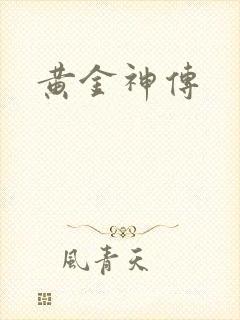 黄金神傳
風青天